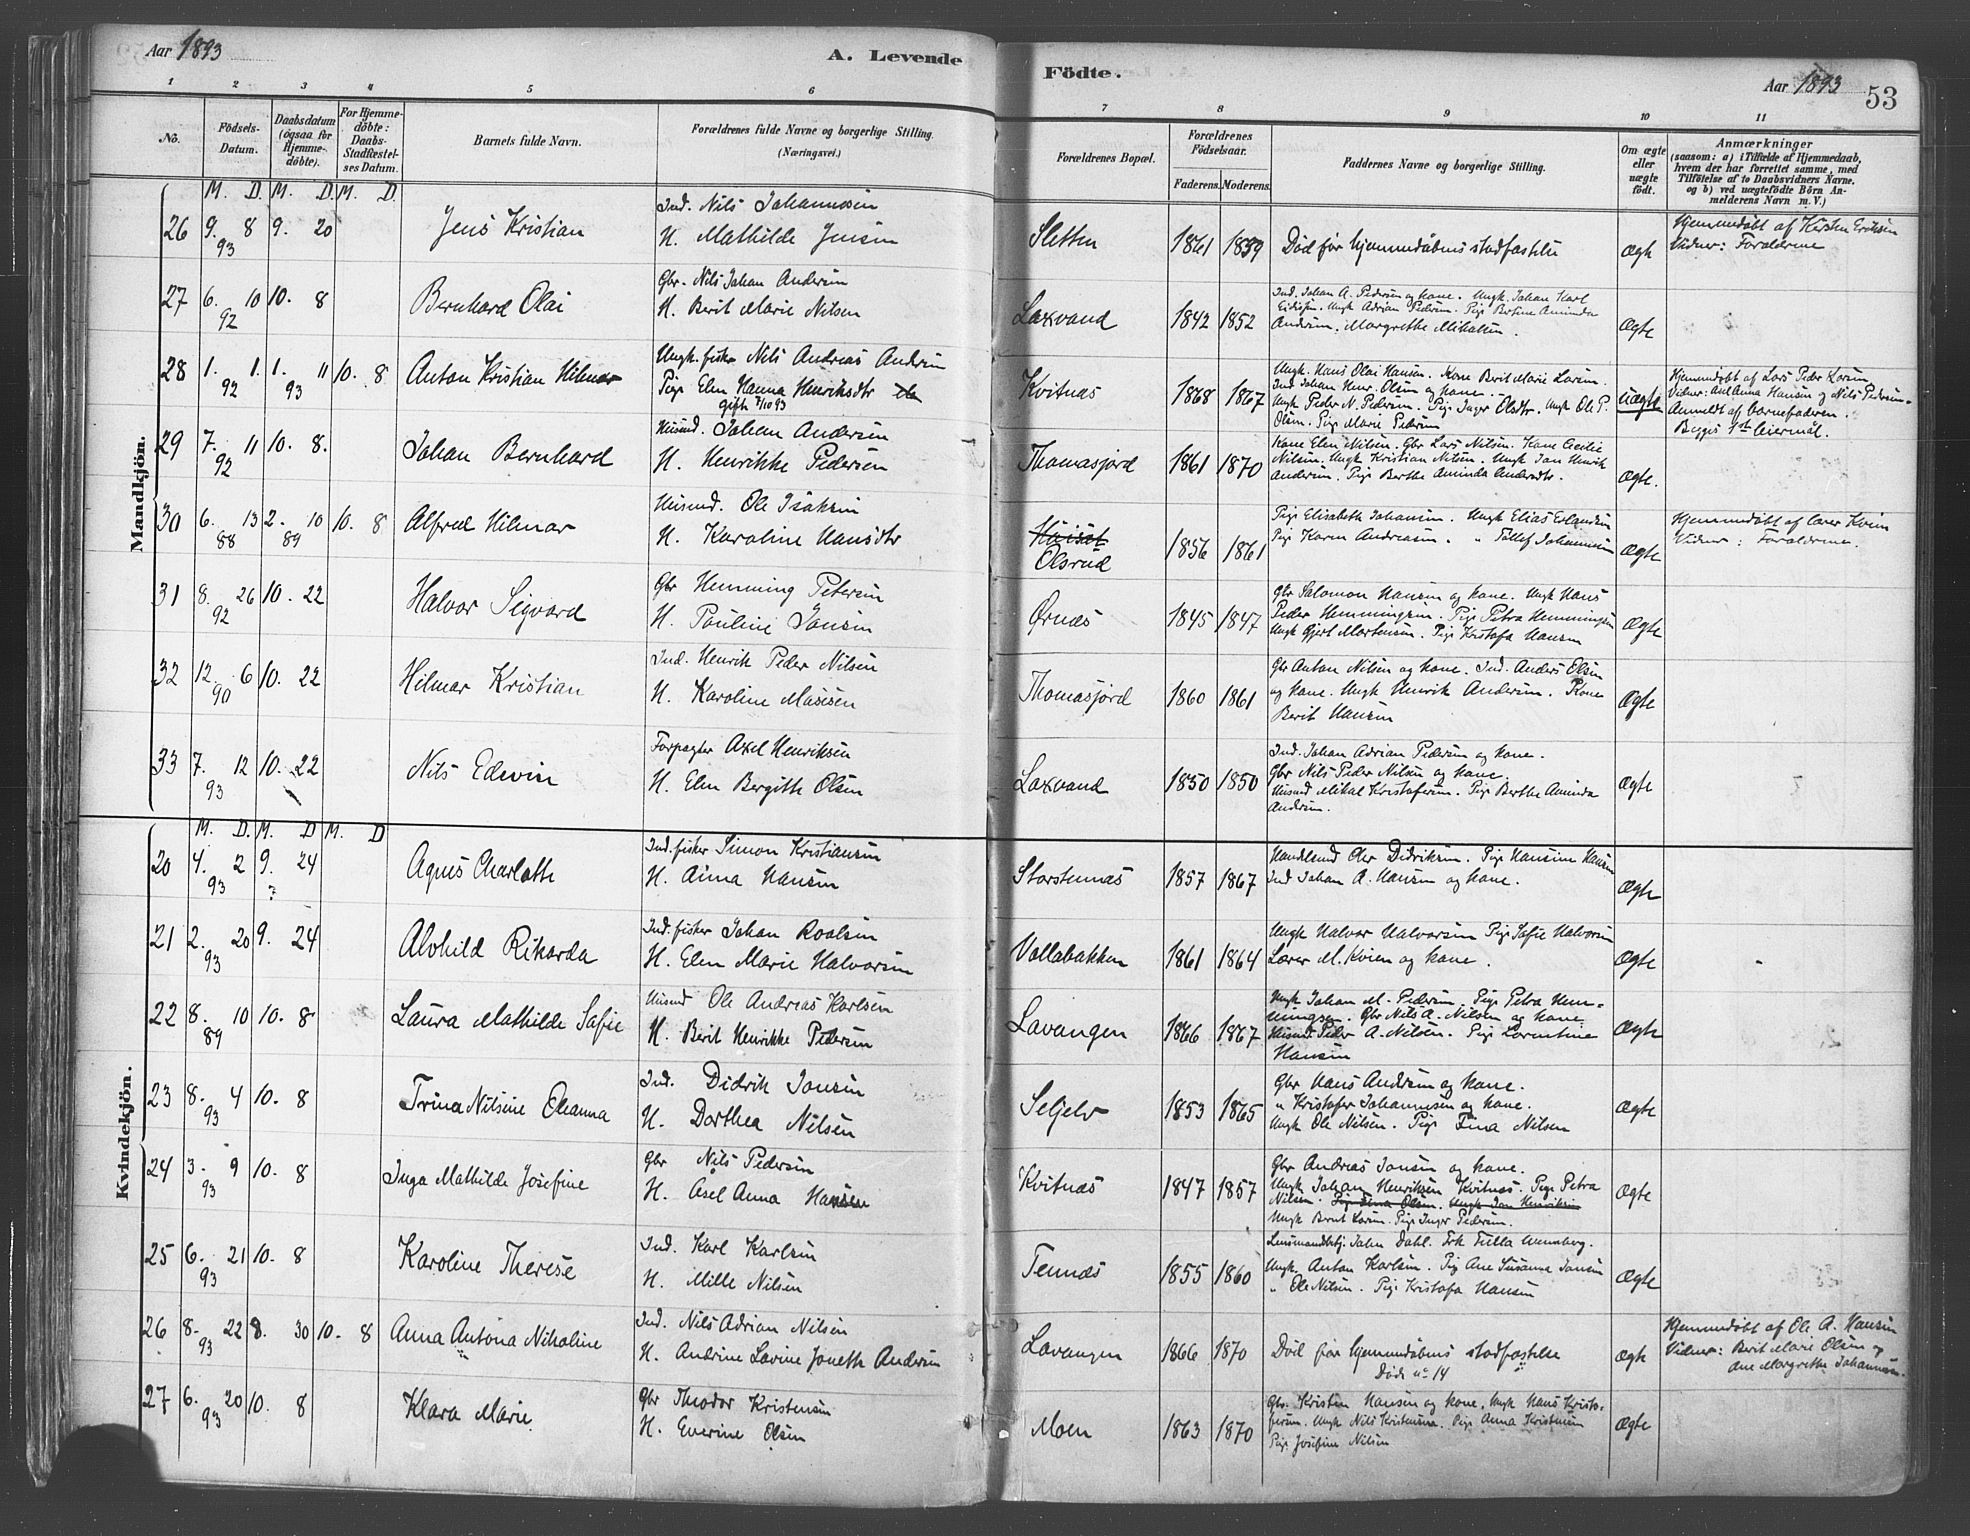 Aar 1893
A. Levende
Födte.
Aar 1893
53
1 2 3 4 5 6 7 8 9 10 11
No.
Födsels-Datum.
Daabsdatum (ogsaa for Hjemme-döbte).
For Hjemme-döbte: Daabs-Stadfæstel-ses Datum.
Barnets fulde Navn.
Forældrenes fulde Navne og borgerlige Stilling.
(Næringsvei.)
Forældrenes Bopæl.
Forældrenes Födselsaar.
Faderens. Moderens.
Faddernes Navne og borgerlige Stilling.
Om ægte eller uægte födt.
Anmærkninger
(saasom: a) i Tilfælde af Hjemmedaab, hvem der har forrettet samme, med Tilföielse af to Daabsvidners Navne, og b) ved uægtefödte Börn Anmelderens Navn m. V.)
Mandkjön.
M. D. M. D. M. D.
26 9. 8 93 9. 20 Jens Kristian
Ind. Nils Johannessen
H. Mathilde Jensen
Sletten 1861 1859 Død før hjemmedåbens stadfæstelse ægte
Hjemmedøbt af Kersten Eriksen
Vidner: Forældrene
27 6. 10 92 10. 8 Bernhard Olai
Gbr. Nils Johan Andersen
H. Berit Marie Nilsen
Laxvand 1842 1852
Ind. Johan A. Pedersen og kone. Ungk. Johan Karl
Ungk Adrian Pedersen. Pige Aminda
Andersen. Margrethe
Ægte
28 1. 1. 92 1. 11 93 10. 8 Anton Kristian Hilmar
Ungk. fisker Nils Andreas Andersen
Pige Elen Hanna Henriksdtr
gift 7/10 93
Kvitnæs 1868 1867
Ungk. Hans Olai Hansen. Kone Berit Marie Larsen.
Ind Johan Henr. Olsen og kone.
Ungk Peder N. Pedersen. Pige Inger Olsdtr. Ungk Ole P.
Olsen. Pige Marie Pedersen
uægte
Hjemmedøbt af Lars Peder Larsen
Vidner: Anna Hansen og Nils Pedersen.
Anmeldt af barnefaderen.
Begges 1ste leiermål.
29 7. 11 92 10. 8. Johan Bernhard
Husmd. Johan Andersen
H. Henrikke Pedersen
Thomasjord 1861 1870
Kone Elen Nilsen. Gbr Lars Nilsen. Kone Cecilie
Nilsen. Ungk Kristian Nilsen. Ungk Jan Henrik
Andersen. Pige Berthe Aminda Andersdtr.
Ægte.
30 6. 13 88 2. 10 89 10. 8 Alfred Hilmar
Husmd. Ole Isaksen
H. Karoline Hansdtr
Olsrud 1856 1861
Pige Elisabeth Johansen. Ungk Elias Erlandsen
Pige Karen Andreasen. " Tollef Johannesen
Ægte
Hjemmedøbt af lærer Kvien
Vidner: Forældrene.
31 8. 26 92 10. 22 Halvor Sigvard
Gbr Hemming Petersen
H. Pauline Jonsen
Ørnæs 1845 1847
Gbr Salomon Hansen og kone. Ungk Hans
Peder Hemmingsen. Pige Petra Hemmingsen
Ungk Gjert Mortensen. Pige Kristofa Hansen
Ægte
32 12. 6 90 10. 22 Hilmar Kristian
Ind. Henrik Peder Nilsen
H. Karoline Masisen
Thomasjord 1860 1861
Gbr Anton Nilsen og kone. Ind. Anders Olsen
og kone. Ungk Henrik Andersen. Kone
Berit Hansen
Ægte
33 7. 12 93 10. 22 Nils Edevin
Forpagter Axel Henriksen
H. Elen Bergitte Olsen
Laxvand 1850 1850
Ind. Johan Adrian Pedersen og kone.
Gbr Nils Peder Nilsen og kone.
Husmd Mikal Kristofersen. Pige Berthe Aminda
Andersen.
Ægte
Kvindekjön.
M. D. M. D M. D
20 4. 2 93 9. 24 ? Agnes Charlotte
Ind. fisker Simon Kristiansen
H. Anna Hansen
Storstennæs 1857 1867
Handelsmd Oler Didriksen. Pige Hansine Hansen
Ind Johan A. Hansen og kone.
Ægte
21 2. 20 93 9. 24 Alvhild Rikarda
Ind. fisker Johan Roalsen
H. Elen Marie Halvorsen
Vollabakken 1861 1864
Ungk Halvor Halvorsen Pige Sofie Halvorsen
Lærer M. Kvien og kone.
Ægte
22 8. 10 89 10. 8 Laura Mathilde Sofie
Husmd Ole Andreas Karlsen
H. Berit Henrikke Pedersen
Lavangen 1866 1867
Ungk Johan M. Pedersen. Pige Petra Hem-
mingsen. Gbr Nils A. Nilsen og kone
Husmd Peder A. Nilsen. Pige Lorentine
Hansen
Ægte
23 8. 4 93 10. 8 Trina Nilsine Oleanna
Ind. Didrik Jonsen
H. Dorthea Nilsen
Seljelv 1853 1865
Gbr Hans Andersen og kone.
" Kristofer Johannesen og kone.
Ungk Ole Nilsen. Pige Tina Nilsen
Ægte
24 3. 9 93 10. 8 Inga Mathilde Josefine
Gbr Nils Pedersen
H. Åsel Anna Hansen
Kvitnæs 1847 1857
Gbr Andreas Jonsen og kone.
Ungk Johan Henriksen Kvitnæs. Pige Petra
Nilsen. Pige Olsen. Ungk Jan Henriksen
Ungk Bernt Larsen. Pige Inger Pedersen.
Ægte
25 6. 21 93 10. 8 Karoline Therese
Ind. Karl Karlsen
H. Mille Nilsen
Tennæs 1855 1860
Lensmandsbetj. John Dahl. Frk Tulla Wennberg.
Ungk. Anton Karlsen. Pig Ane Susanna Jonsen
" Ole Nilsen. Pige Kristofa Hansen
Ægte
26 8. 22 93 8. 30 10. 8 Anna Antona Nikoline
Ind. Nils Adrian Nilsen
H. Andrine Lovine Jonette Andersen
Lavangen 1866 1870 Død før hjemmedåbens stadfæstelse
Døde no 14
ægte
Hjemmedøbt af Ole A. Hansen
Vidner: Berit Marie Olsen og
Ane Margrethe Johannesen.
27 6. 20 93 10. 8 Klara Marie
Gbr Theodor Kristensen
H. Everine Olsen
Moen 1863 1870
Gbr. Kristen Hansen og kone. Ungk Hans Kristo-
fersen. Ungk Nils Kristensen. Pige Anna Kristensen
Pige Josefine Nilsen
Ægte